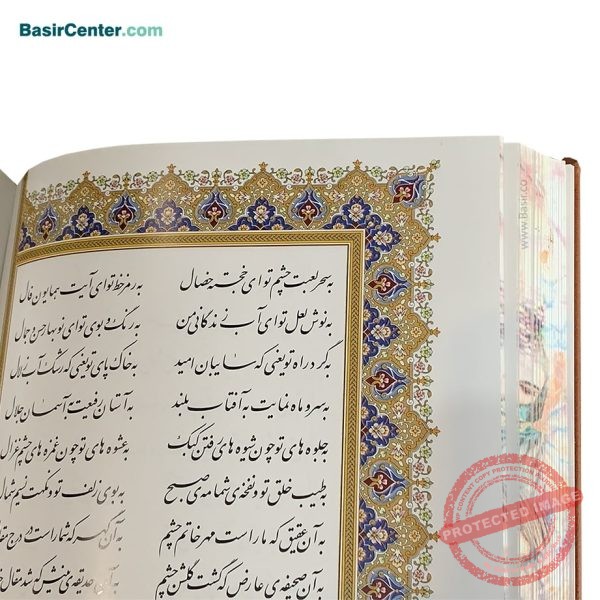 BasirCenter.com
به سحر لعبت چشم تو ای خجسته خصال به رمز خط تو ای آیت همایون فال
به نوش لعل تو ای آب زندگانی من به رنگ و بوی تو ای نوبهار حسن و جمال
به گرد راه تو یعنی که سایبان امید به خاک پای تو یعنی که رشک آب زلال
به سرو ماه نمایت به آفتاب بلند به آستان رفیعت به آسمان جلال
به جلوه های تو چون شیوه های رفتن کبک به عشوه های تو چون غمزه های چشم غزال
به طیب خلق تو و نفخه ی شمامه ی صبح به بوی زلف تو و نکهت نسیم شمال
به آن عقیق که ما راست مهر خاتم چشم به آن گهر که شما راست در درج
به آن صحیفه ی عارض که گشت گلشن چشم به آن حدیقه ی بینش که شد
www.Basir.co
COPYRIGHT PROTECTION ACTIVE
PROTECTED IMAGE